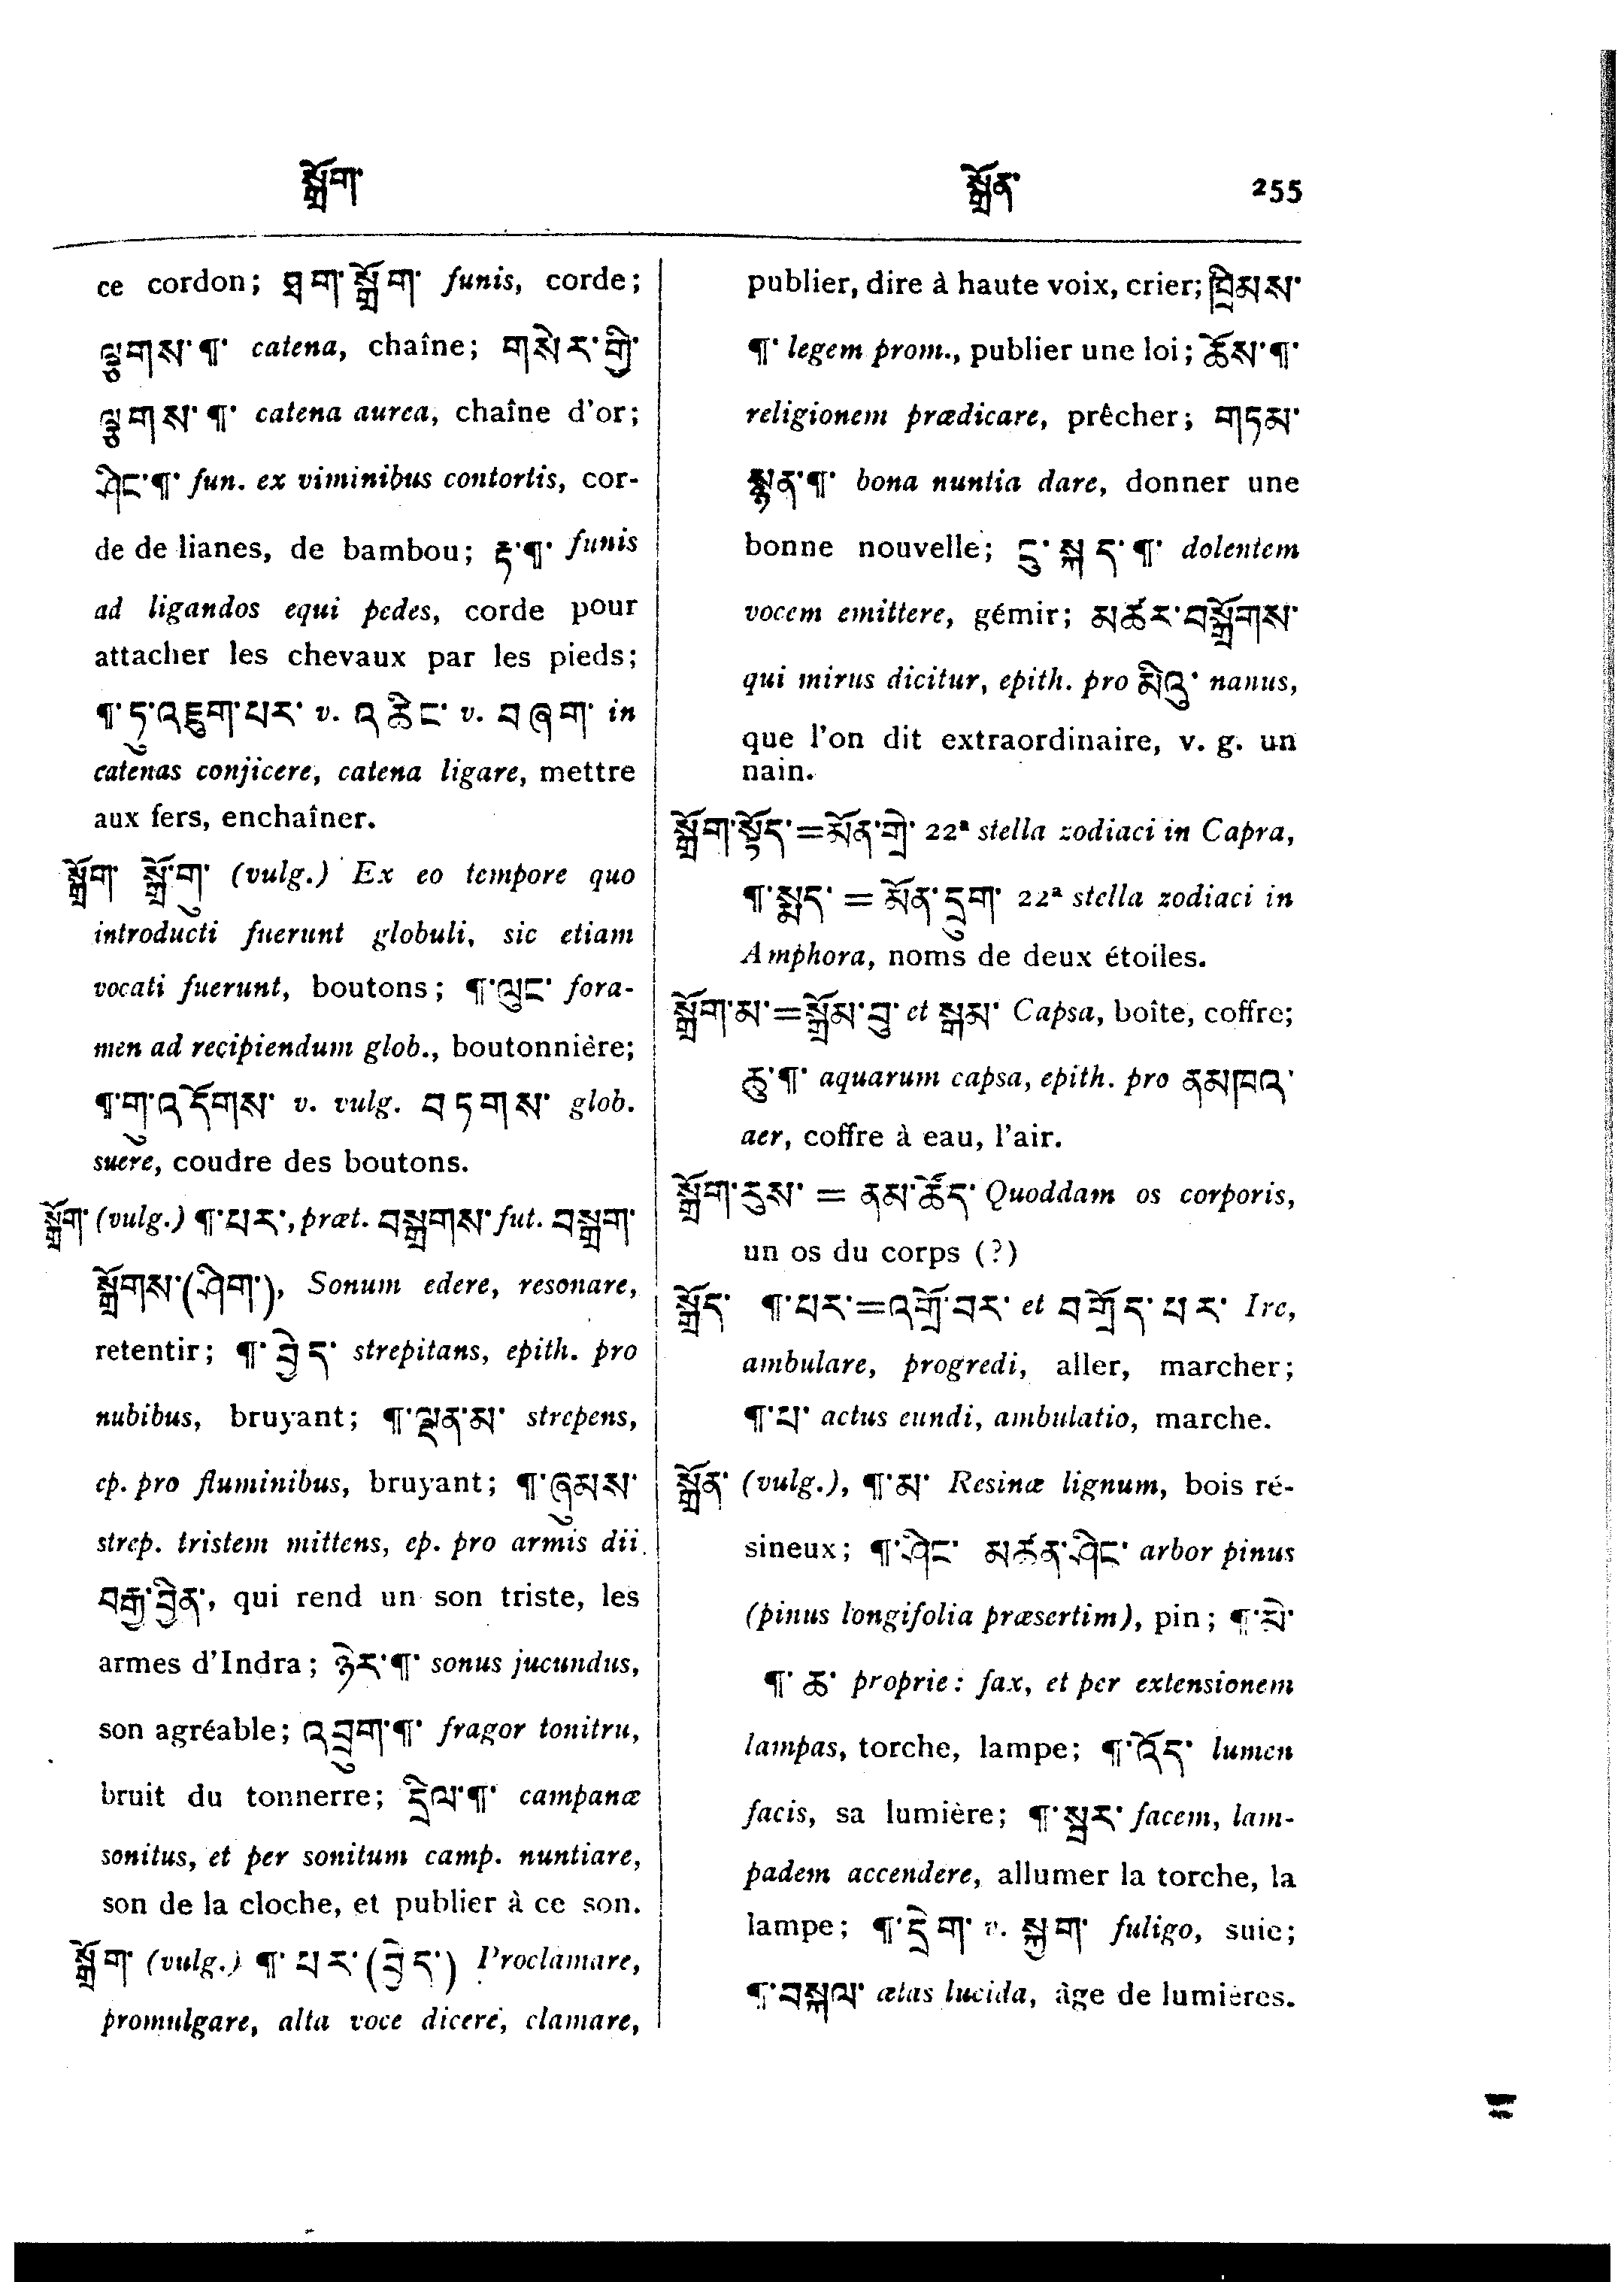 སྒྲོག་ སྒྲོན་ 255
ce cordon; ཐག་སྒྲོག་ funis, corde;
ལྕགས་¶་ catena, chaîne; གསེར་གྱི་
ལྕགས་¶་ catena aurea, chaîne d'or;
ཤིང་¶་ fun. ex viminibus contortis, cor-
de de lianes, de bambou; རྟ་¶་ funis
ad ligandos equi pedes, corde pour
attacher les chevaux par les pieds;
¶་ཏུ་འཇུག་པར་ v. འཆིང་ v. བཞག་ in
catenas conjicere, catena ligare, mettre
aux fers, enchaîner.
སྒྲོག་ སྒྲོ་གུ་ (vulg.) Ex eo tempore quo
introducti fuerunt globuli, sic etiam
vocati fuerunt, boutons; ¶་ལུང་ fora-
men ad recipiendum glob., boutonnière;
¶་གུ་འདོགས་ v. vulg. བཏགས་ glob.
suere, coudre des boutons.
སྒྲོག་ (vulg.) ¶་པར་, præt. བསྒྲགས་ fut. བསྒྲག་
སྒྲོགས་(ཤིག་), Sonum edere, resonare,
retentir; ¶་བྱེད་ strepitans, epith. pro
nubibus, bruyant; ¶་ལྡན་མ་ strepens,
ep. pro fluminibus, bruyant; ¶་ཞུམས་
strep. tristem mittens, ep. pro armis dii
བརྒྱ་བྱིན་, qui rend un son triste, les
armes d'Indra; ཉེར་¶་ sonus jucundus,
son agréable; འབྲུག་¶་ fragor tonitru,
bruit du tonnerre; དྲིལ་¶་ campanæ
sonitus, et per sonitum camp. nuntiare,
son de la cloche, et publier à ce son.
སྒྲོག་ (vulg.) ¶་པར་(བྱེད་) Proclamare,
promulgare, alta voce dicere, clamare,
publier, dire à haute voix, crier; ཁྲིམས་
¶་ legem prom., publier une loi; ཆོས་¶་
religionem prædicare, prêcher; གཏམ་
སྙན་¶་ bona nuntia dare, donner une
bonne nouvelle; ངུ་སྐད་¶་ dolentem
vocem emittere, gémir; མཚར་བསྒྲོགས་
qui mirus dicitur, epith. pro མིའུ་ nanus,
que l'on dit extraordinaire, v. g. un
nain.
སྒྲོག་སྟོད་=མོན་གྲེ་ 22ª stella zodiaci in Capra,
¶་སྨད་ = མོན་དྲུག་ 22ª stella zodiaci in
Amphora, noms de deux étoiles.
སྒྲོག་མ་=སྒྲོམ་བུ་ et སྒམ་ Capsa, boîte, coffre;
ཆུ་¶་ aquarum capsa, epith. pro ནམཁའ་
aer, coffre à eau, l'air.
སྒྲོག་རུས་ = ནམ་ཚོད་ Quoddam os corporis,
un os du corps (?)
སྒྲོད་ ¶་པར་=འགྲོ་བར་ et བགྲོད་པར་ Ire,
ambulare, progredi, aller, marcher;
¶་པ་ actus eundi, ambulatio, marche.
སྒྲོན་ (vulg.), ¶་མ་ Resinæ lignum, bois ré-
sineux; ¶་ཤིང་ མཚན་ཤིང་ arbor pinus
(pinus longifolia præsertim), pin; ¶་མེ་
¶་ཆ་ proprie: fax, et per extensionem
lampas, torche, lampe; ¶་འོད་ lumen
facis, sa lumière; ¶་སྦར་ facem, lam-
padem accendere, allumer la torche, la
lampe; ¶་དྲེག་ v. སྐྱག་ fuligo, suie;
¶་བསྐལ་ ætas lucida, âge de lumières.